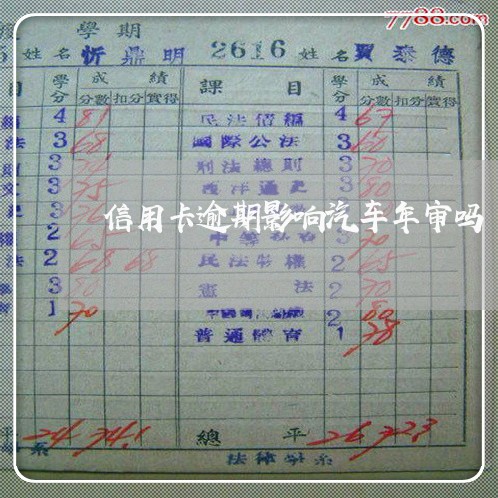 7788.com
學期
5 姓名 忻鼎明 2616 姓名 賈泰德
目 學分 成績 課目 學分 成績
分數 扣分 實得 分數 扣分 實得
4 81 民法債編 4 67
法 3 68 國際公法 3 60
3 刑法總則 3 70
3 75 西洋通史 3 80
信用卡逾期影响汽车年审吗
2 65 3 70
法 2 68 68 民法物權 2 65
3 80 憲法 2 70
1 70 2 80
普通體育 1 78
平 24 74.1 總平 26 72.3
系 法律學系